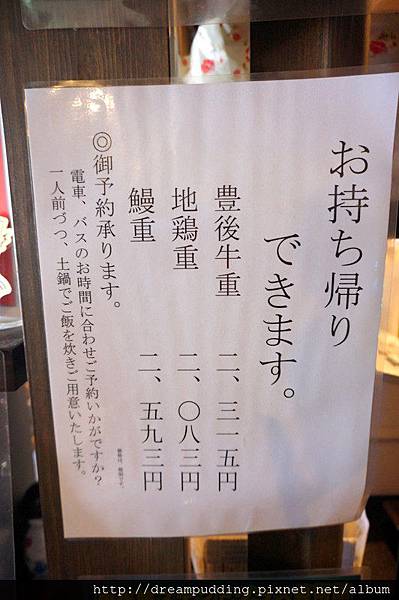 お持ち帰り
できます。
豊後牛重 二、三一五円
地鶏重 二、〇八三円
鰻重 二、五九三円
◎御予約承ります。
電車、バスのお時間に合わせご予約いかがですか？
一人前づつ、土鍋でご飯を炊きご用意いたします。
http://dreampudding.pixnet.net/album